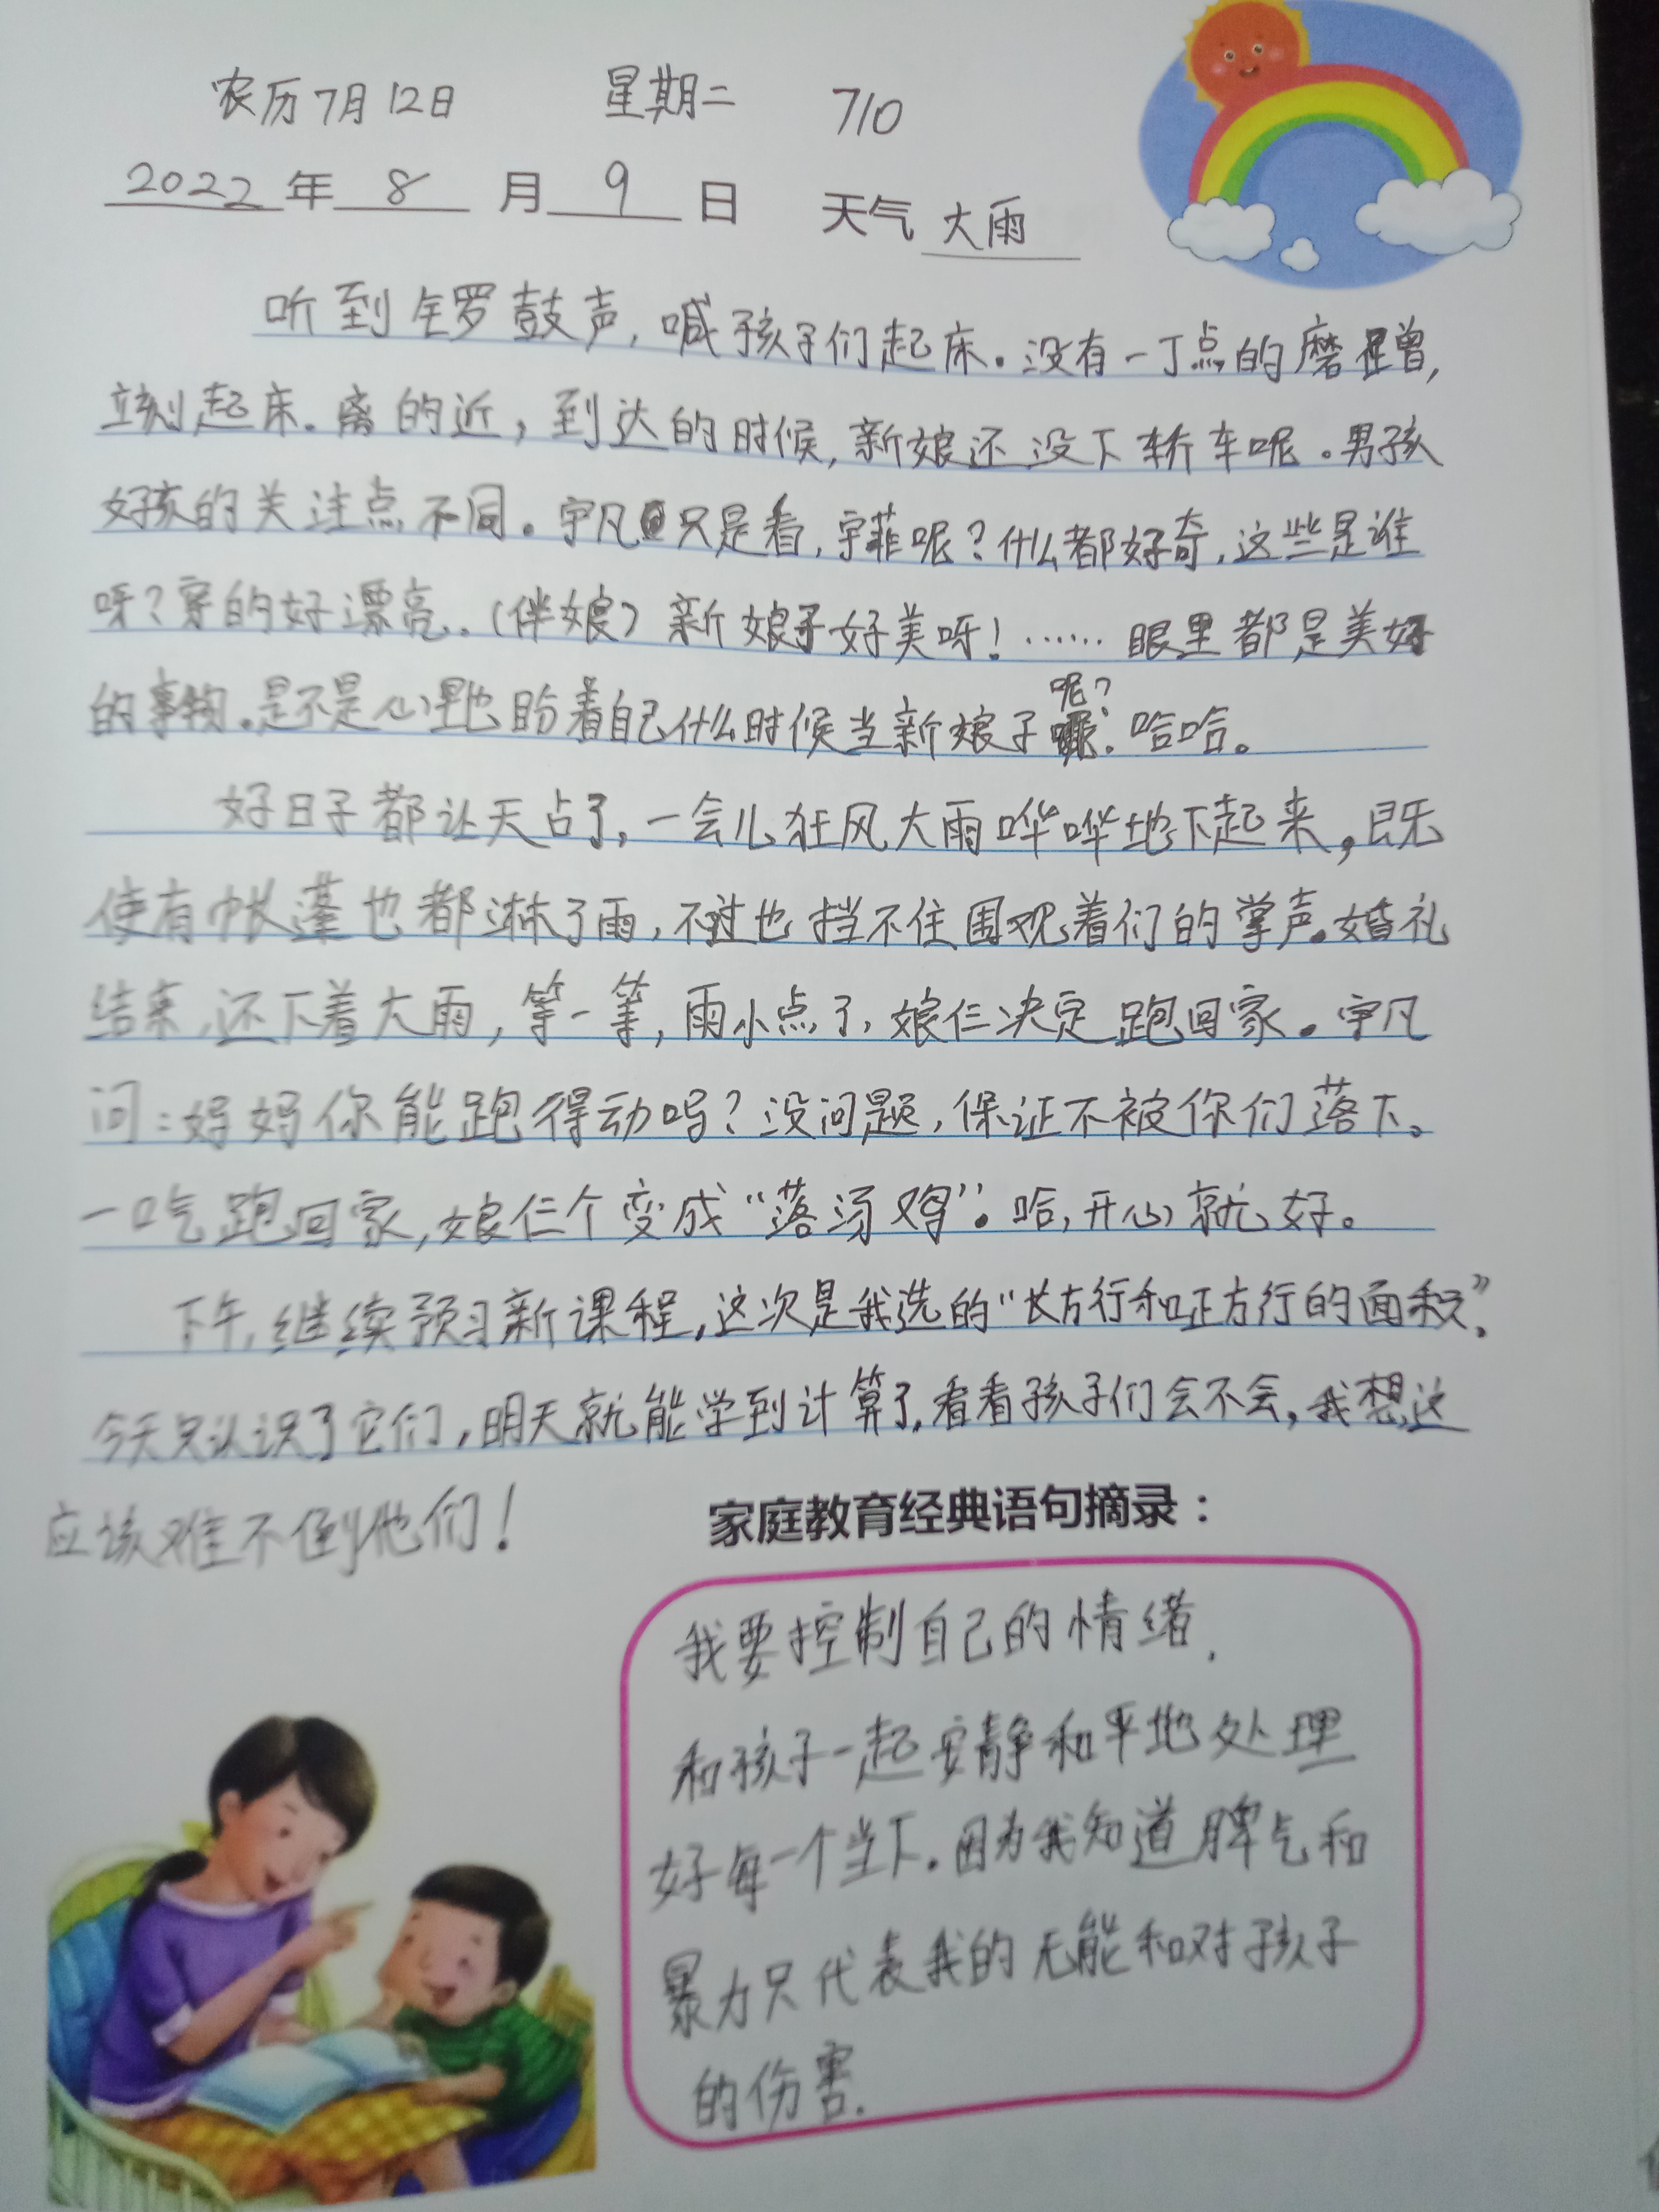 农历7月12日 星期二 710
2022年 8 月 9 日 天气 大雨
听到锣鼓声，喊孩子们起床。没有一丁点的磨蹭，
立刻起床。离的近，到达的时候，新娘还没下轿车呢。男孩
好孩的关注点不同。宇凡只是看，宇菲呢？什么都好奇，这些是谁
呀？穿的好漂亮。（伴娘）新娘子好美呀！……眼里都是美好
的事物。是不是心里也盼着自己什么时候当新娘子呢？哈哈。
好日子都让天占了，一会儿狂风大雨哗哗地下起来，既
使有帐蓬也都淋了雨，不过也挡不住围观着们的掌声。婚礼
结束，还下着大雨，等一等，雨小点了，娘仨决定跑回家。宇凡
问：妈妈你能跑得动吗？没问题，保证不被你们落下。
一口气跑回家，娘仨个变成“落汤鸡”。哈，开心就好。
下午，继续预习新课程，这次是我选的“长方行和正方行的面积”。
今天只认识了它们，明天就能学到计算了，看看孩子们会不会，我想这
应该难不倒他们！
家庭教育经典语句摘录：
我要控制自己的情绪，
和孩子一起安静和平地处理
好每一个当下。因为我知道脾气和
暴力只代表我的无能和对孩子
的伤害．